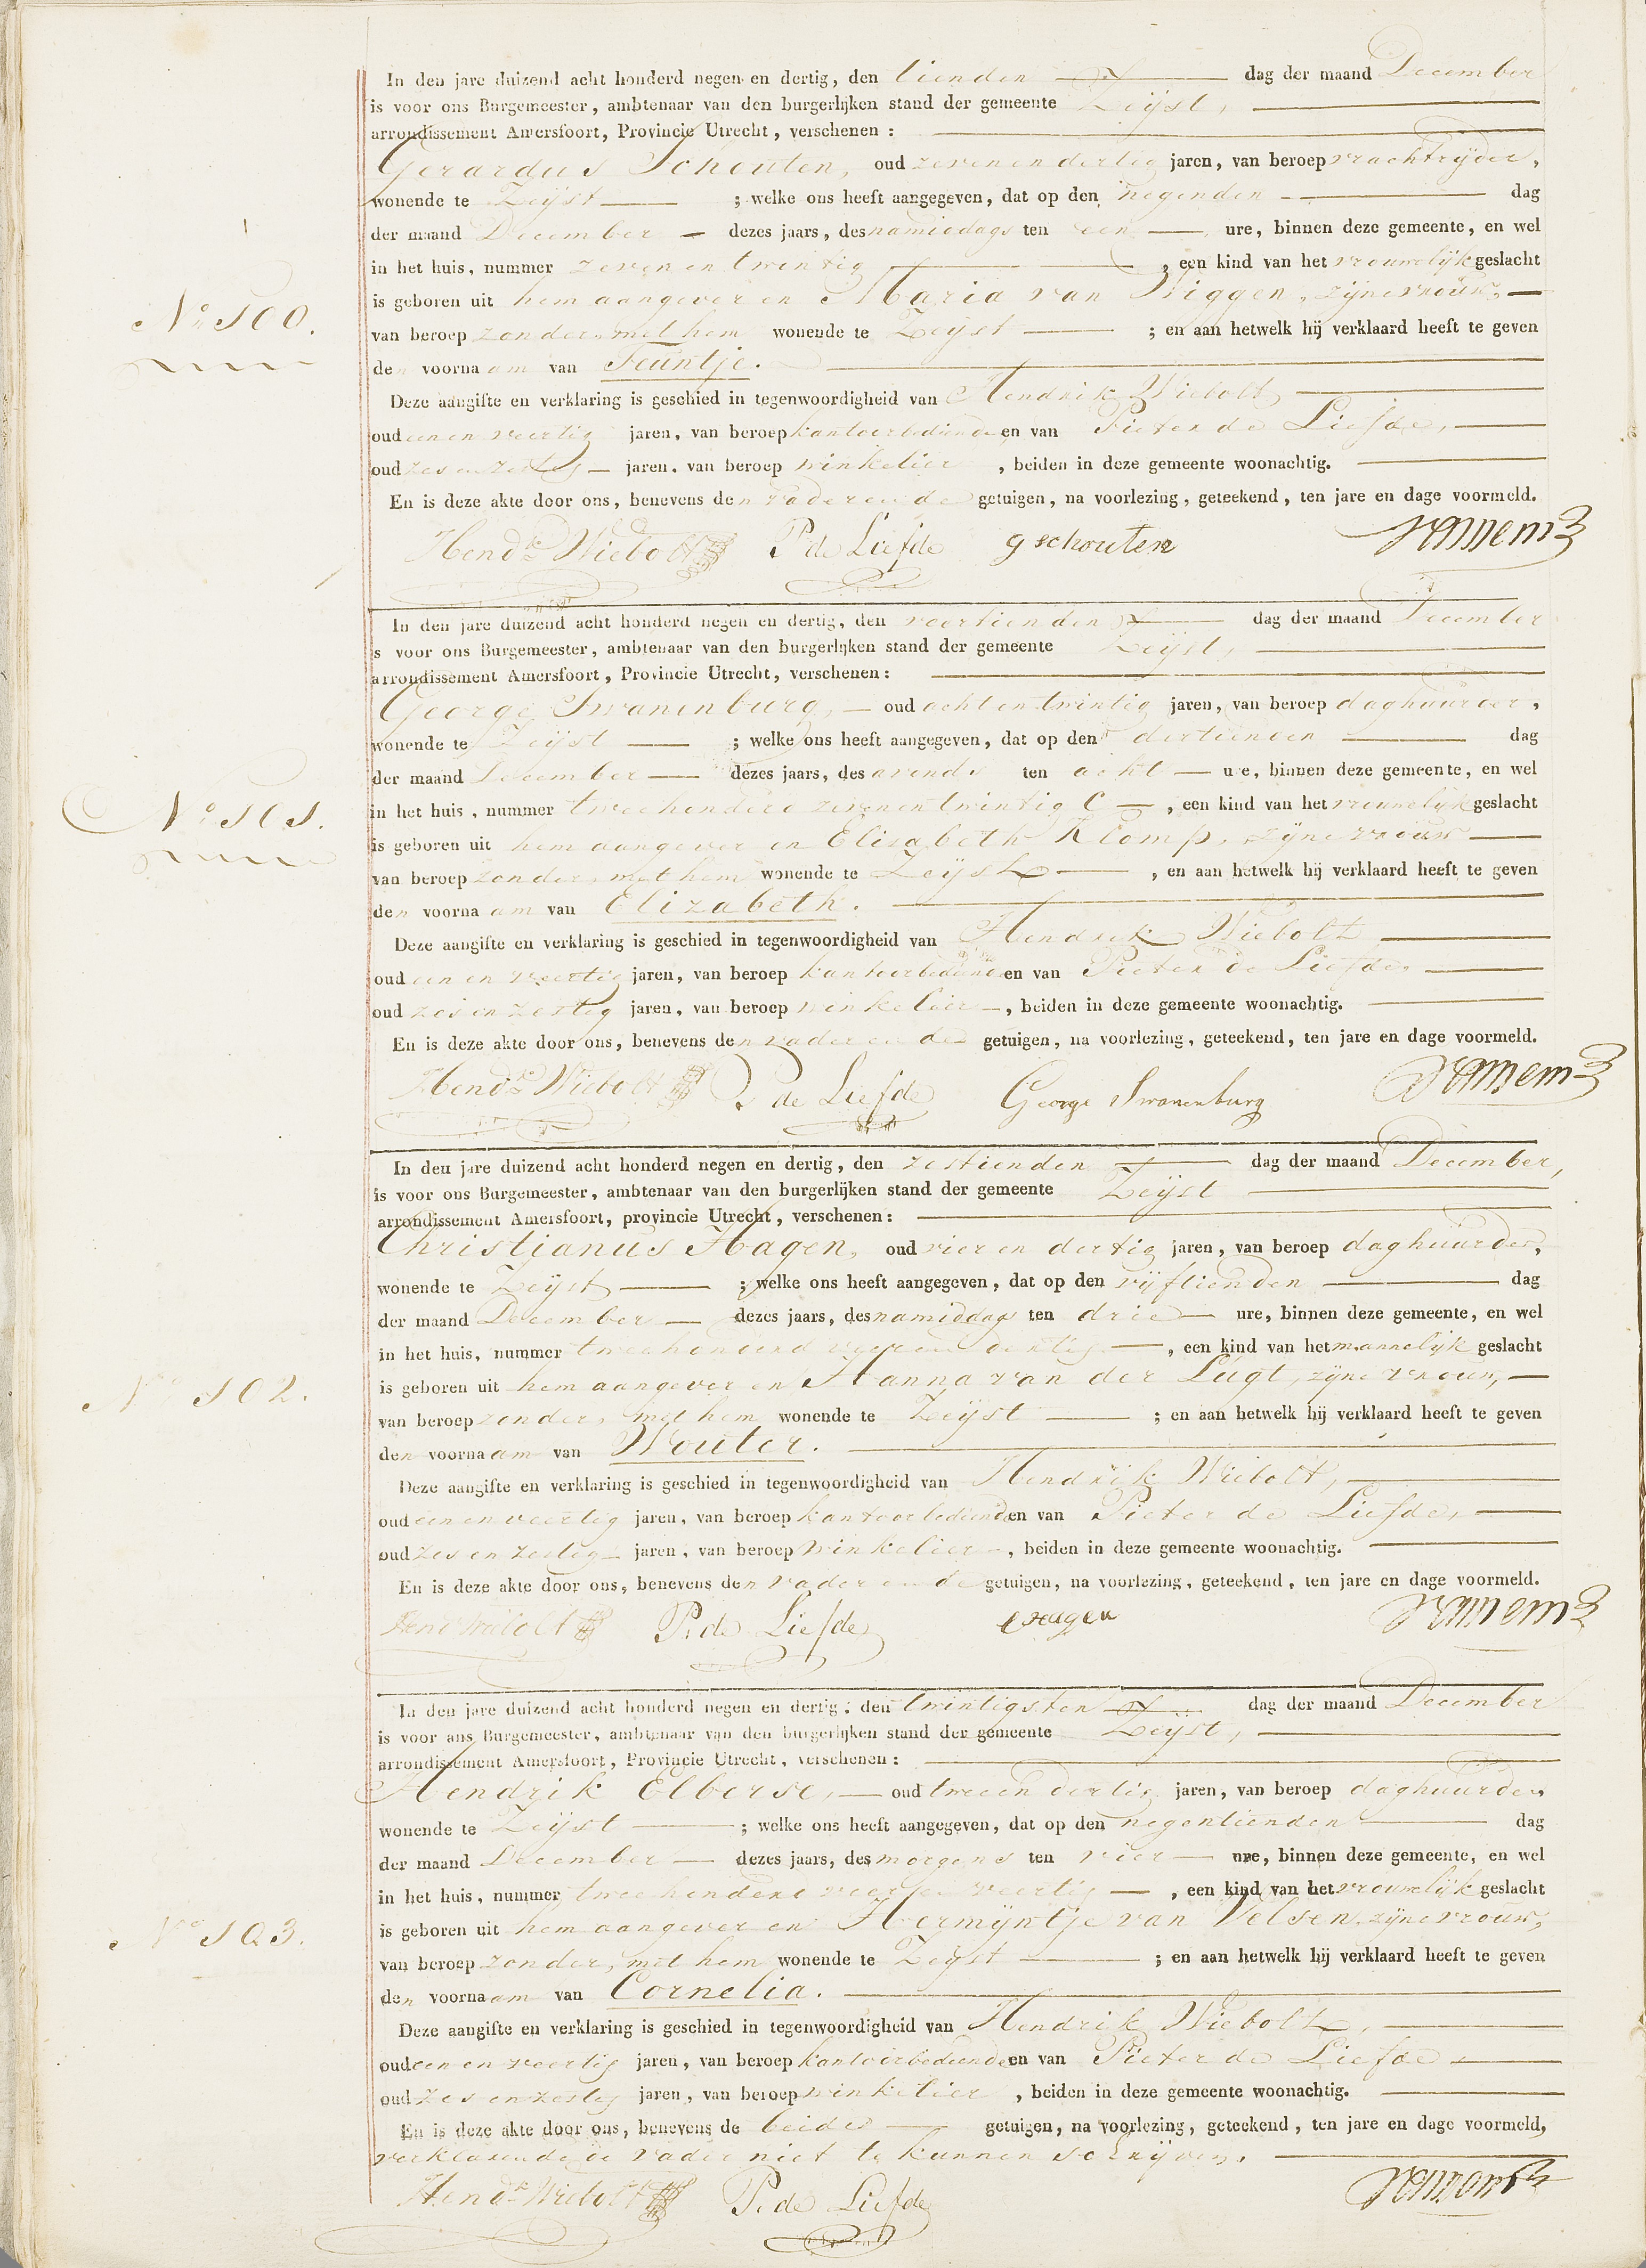 In den jare duizend acht honderd negen en dertig, den tienden dag der maand December
is voor ons Burgemeester, ambtenaar van den burgerlijken stand der gemeente Zeijst,
arrondissement Amersfoort, Provincie Utrecht, verschenen:
Gerardus Schouten, oud zeven en dertig jaren, van beroep vrachtrijder,
wonende te Zeijst ; welke ons heeft aangegeven, dat op den negenden dag
der maand December dezes jaars, des namiddags ten een ure, binnen deze gemeente, en wel
in het huis, nummer zeven en twintig , een kind van het vrouwelijk geslacht
is geboren uit hem aangever en Maria van Wiggen, zijne vrouw,
No 100.
van beroep zonder, met hem wonende te Zeijst ; en aan hetwelk hij verklaard heeft te geven
den voornaam van Teuntje.
Deze aangifte en verklaring is geschied in tegenwoordigheid van Hendrik Wiebolt
oud een en veertig jaren, van beroep kantoorbediende en van Pieter de Liefde,
oud zes en zestig jaren, van beroep winkelier , beiden in deze gemeente woonachtig.
En is deze akte door ons, benevens den vader en de getuigen, na voorlezing, geteekend, ten jare en dage voormeld.
Hendk Wiebolt P. de Liefde g schouten
In den jare duizend acht honderd negen en dertig, den veertienden dag der maand December
is voor ons Burgemeester, ambtenaar van den burgerlijken stand der gemeente Zeijst,
arrondissement Amersfoort, Provincie Utrecht, verschenen:
George Swanenburg, oud acht en twintig jaren, van beroep daghuurder,
wonende te Zeijst ; welke ons heeft aangegeven, dat op den dertienden dag
der maand December dezes jaars, des avonds ten acht ure, binnen deze gemeente, en wel
No 101.
in het huis, nummer twee honderd zeven en twintig C , een kind van het vrouwelijk geslacht
is geboren uit hem aangever en Elisabeth Klomp, zijne vrouw
van beroep zonder, met hem wonende te Zeijst , en aan hetwelk hij verklaard heeft te geven
den voornaam van Elizabeth.
Deze aangifte en verklaring is geschied in tegenwoordigheid van Hendrik Wiebolt
oud een en veertig jaren, van beroep kantoorbediende en van Pieter de Liefde,
oud zes en zestig jaren, van beroep winkelier , beiden in deze gemeente woonachtig.
En is deze akte door ons, benevens den vader en de getuigen, na voorlezing, geteekend, ten jare en dage voormeld.
Hendk Wiebolt P. de Liefde George Swanenburg
In den jare duizend acht honderd negen en dertig, den zestienden dag der maand December,
is voor ons Burgemeester, ambtenaar van den burgerlijken stand der gemeente Zeijst
arrondissement Amersfoort, provincie Utrecht, verschenen:
Christjanus Hagen, oud vier en dertig jaren, van beroep daghuurder,
wonende te Zeijst ; welke ons heeft aangegeven, dat op den vijftienden dag
der maand December dezes jaars, des namiddags ten drie ure, binnen deze gemeente, en wel
in het huis, nummer twee honderd en dertig , een kind van het mannelijk geslacht
is geboren uit hem aangever en Hanna van der Lugt, zijne vrouw,
No 102.
van beroep zonder, met hem wonende te Zeijst ; en aan hetwelk hij verklaard heeft te geven
den voornaam van Wouter.
Deze aangifte en verklaring is geschied in tegenwoordigheid van Hendrik Wiebolt,
oud een en veertig jaren, van beroep kantoorbediende en van Pieter de Liefde,
oud zes en zestig jaren, van beroep winkelier , beiden in deze gemeente woonachtig.
En is deze akte door ons, benevens den vader en de getuigen, na voorlezing, geteekend, ten jare en dage voormeld.
Hend Wiebolt P. de Liefde c hagen
In den jare duizend acht honderd negen en dertig, den twintigsten dag der maand December
is voor ans Burgemeester, ambtenaar van den burgerlijken stand der gemeente Zeijst,
arrondissement Amersfoort, Provincie Utrecht, verschenen:
Hendrik Elberse, oud twee en dertig jaren, van beroep daghuurder,
wonende te Zeijst ; welke ons heeft aangegeven, dat op den negentienden dag
der maand December dezes jaars, des morgens ten vier ure, binnen deze gemeente, en wel
in het huis, nummer twee honderd veertig , een kind van het vrouwelijk geslacht
is geboren uit hem aangever en Hermijntje van Velsen, zijne vrouw,
No 103.
van beroep zonder, met hem wonende te Zeijst ; en aan hetwelk hij verklaard heeft te geven
den voornaam van Cornelia.
Deze aangifte en verklaring is geschied in tegenwoordigheid van Hendrik Wiebolt,
oud een en veertig jaren, van beroep kantoorbediende en van Pieter de Liefde
oud zes en zestig jaren, van beroep winkelier , beiden in deze gemeente woonachtig.
En is deze akte door ons, benevens de beide getuigen, na voorlezing, geteekend, ten jare en dage voormeld,
verklarende de vader niet te kunnen schrijven.
Hendk Wiebolt P. de Liefde